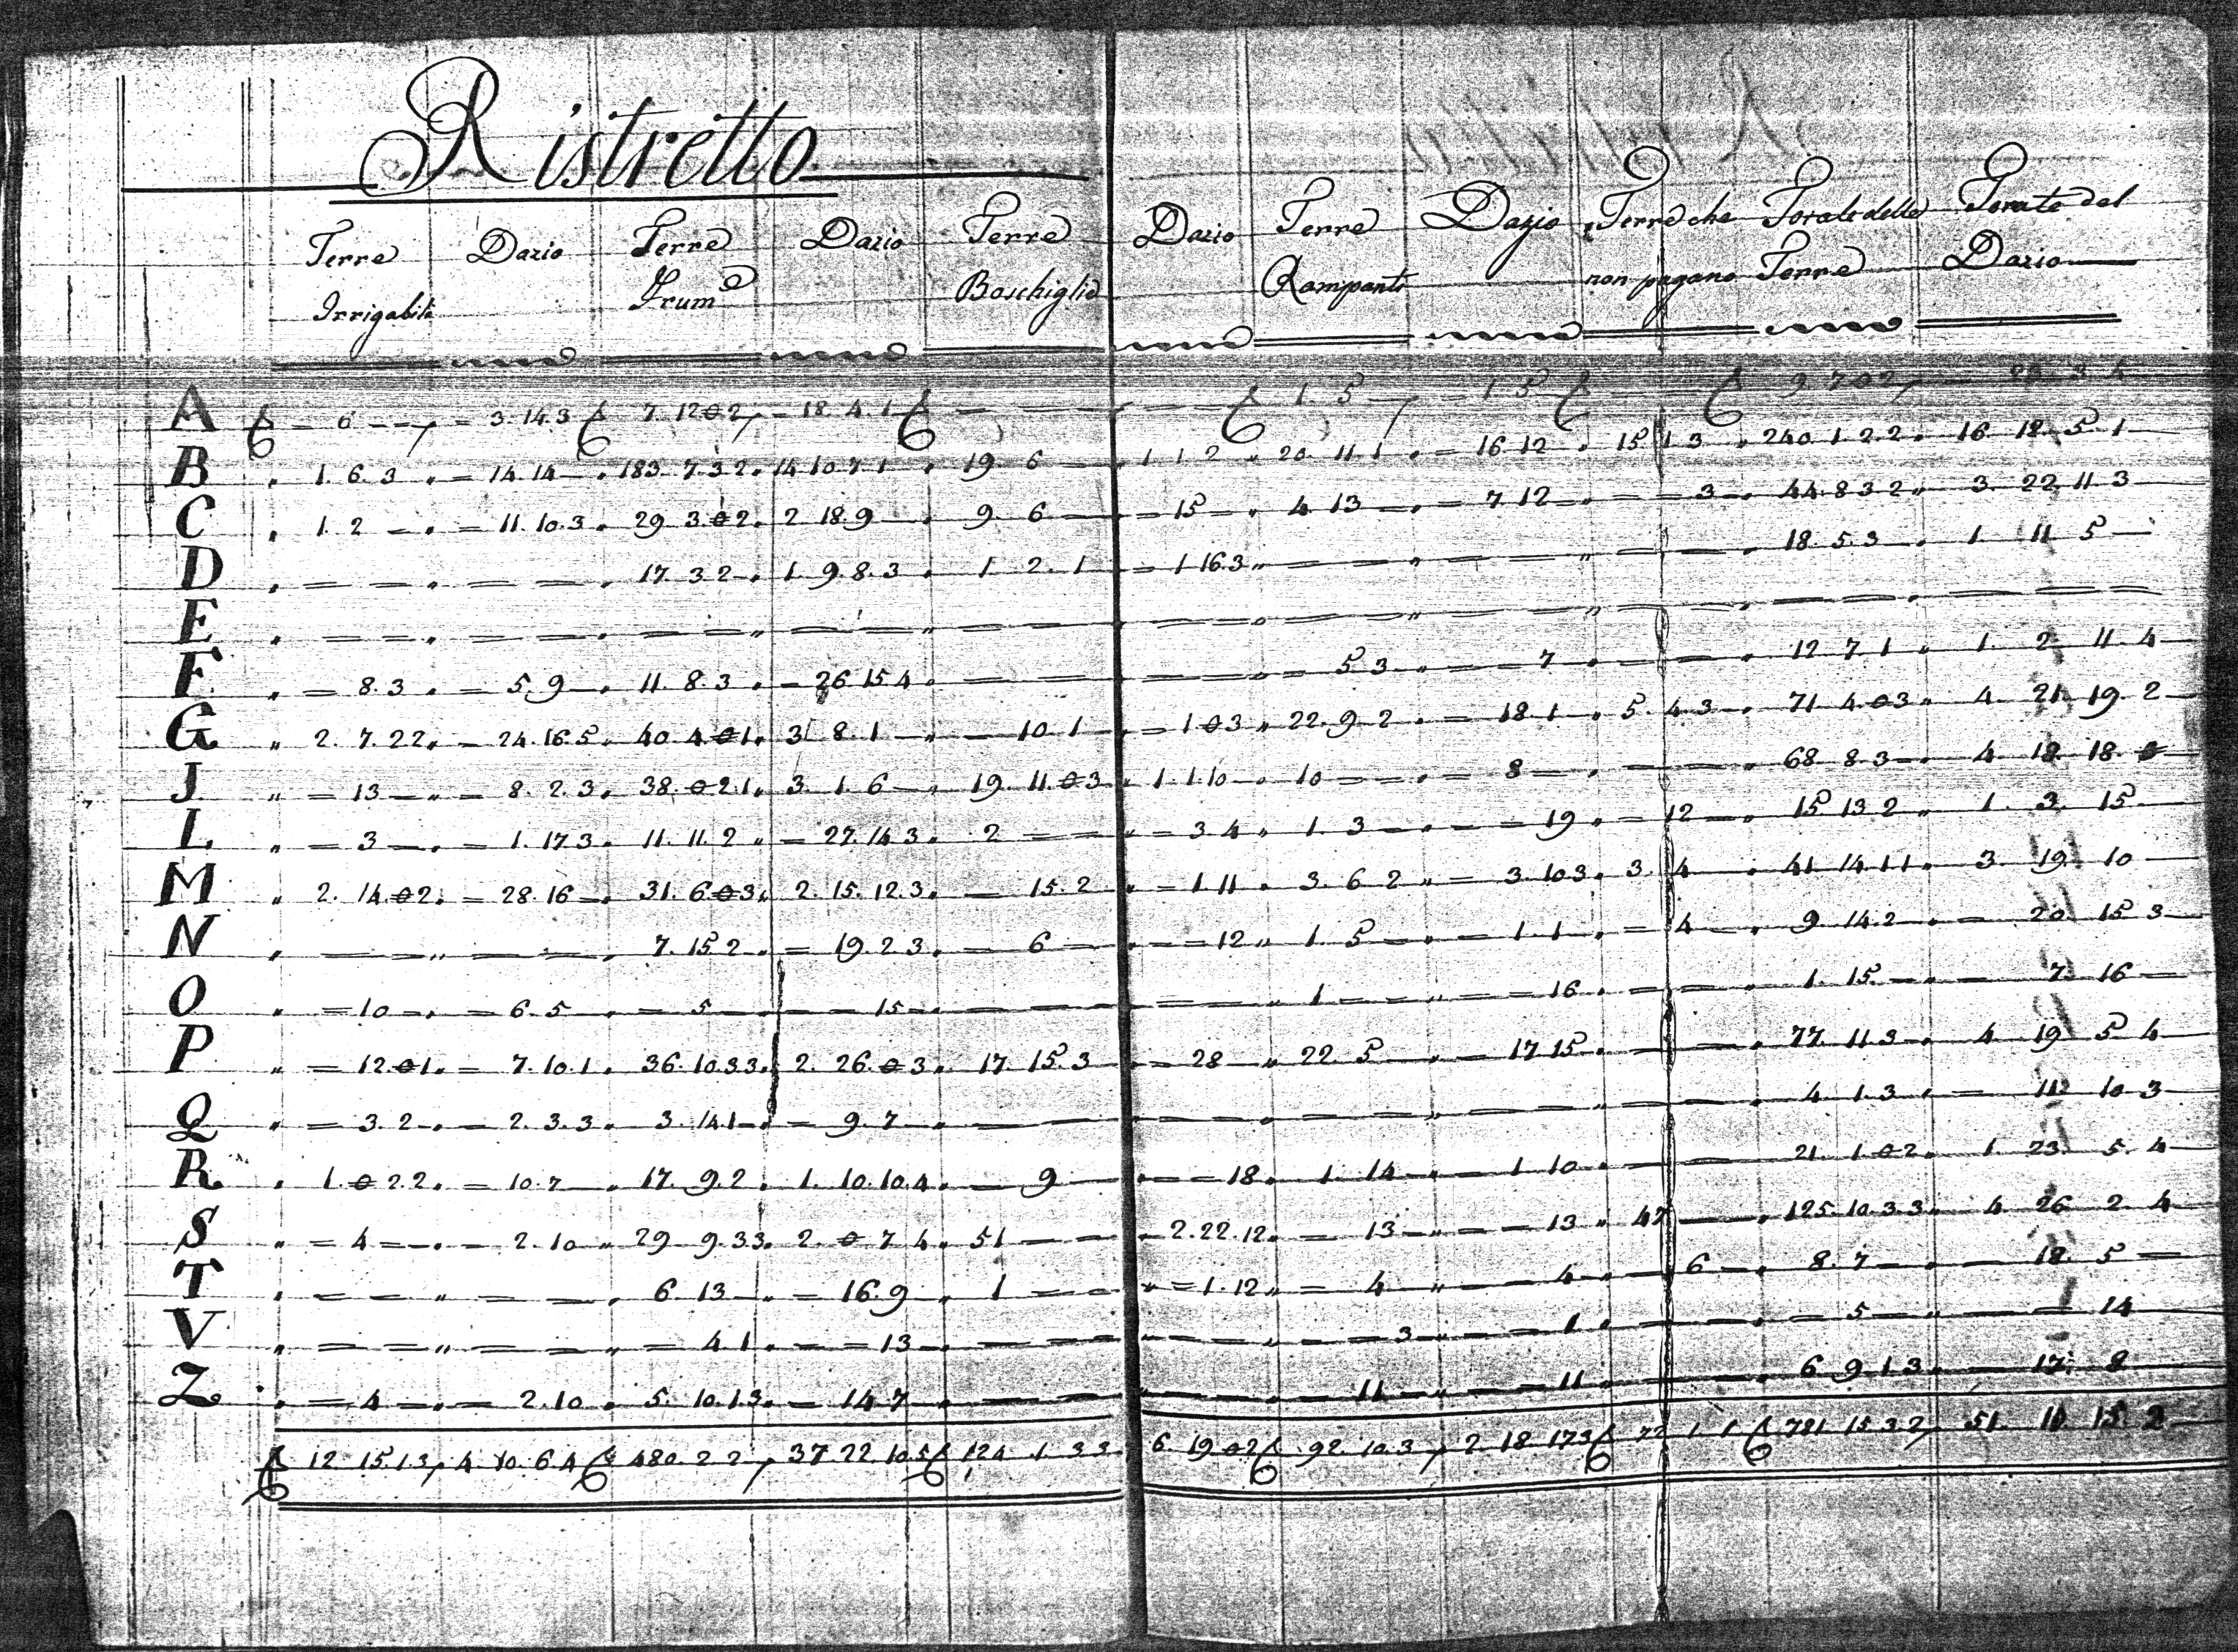 Ristretto
Terre Dazio Terre Dazio Terre Dazio Terre Dazio Terre che Totale delle Totale del
Irrigabili Frum.e Boschiglie Rampanti non pagano Terre Dazio
A = 6 = 3.14.3 7.12.0.2 = 18.4.1 = 1.5 = 1 5 9.7.0.2
B 1.6.3 = 14.14 183.7.3.2 14.10.7.1 19.6 1.1.2 20.11.1 = 16.12 15 1 3 240.1.2.2 16 18 5 1
C 1.2 = 11.10.3 29 3.0.2 2.18.9 9.6 = 15 4.13 = 7.12 = 3 44.8.3.2 3 22 11 3
D = = 17.3.2 1.9.8.3 1.2.1 = 1.16.3 = = = 18.5.3 1 11 5
E = = = = = = = = = = =
F = 8.3 = 5.9 11.8.3 = 26.15.4 = = = 5.3 = 7 = 12.7.1 1 2 11 4
G 2.7.2.2 = 24.16.5 40.4.0.1 3 8.1 = 10.1 = 1.0.3 22.9.2 = 18.1 5.4.3 71.4.0.3 4 21 19 2
J = 13 = 8.2.3 38.0.2.1 3.1.6 19.11.0.3 1.1.10 10 = = 8 = 68.8.3 4 18 18 0
L = 3 = 1.17.3 11.11.2 = 27.14.3 2 = = 3.4 1.3 = 19 = 12 15.13.2 1 3 15
M 2.14.0.2 = 28.16 31.6.0.3 2.15.12.3 = 15.2 = 1.11 3.6.2 = 3.10.3 3 4 41.14.1.1 3 19 10
N = = 7.15.2 = 19.2.3 = 6 = 12 1.5 = 1.1 = 4 9.14.2 = 20 15 3
O = 10 = 6.5 = 5 = 15 = = 1 = = 16 = 1.15 = 7 16
P = 12.0.1 = 7.10.1 36.10.3.3 2.26.0.3 17.15.3 = 28 22.5 = 17.15 = 77.11.3 4 19 5 4
Q = 3.2 = 2.3.3 3.14.1 = 9.7 = = = = = 4.1.3 = 11 10 3
R 1.0.2.2 = 10.7 17.9.2 1.10.10.4 = 9 = 18 1.14 = 1.10 = 21.1.0.2 1 23 5 4
S = 4 = 2.10 29 9.3.3 2.0.7.4 51 = 2.22.12 = 13 = 13 47 125.10.3.3 4 26 2 4
T = = 6.13 = 16.9 1 = = 1.12 = 4 = 4 6 8.7 = 18 5
V = = = 4.1 = 13 = = = 3 = 1 = = 5 = 1 14
Z = 4 = 2.10 5.10.1.3 = 14.7 = = = 11 = 11 = 6 9.1.3 = 17 8
12 15.1.3 4 10.6.4 480.2.2 37.22.10.5 124.1.3.3 6.19.0.2 92.10.3 2.18.17.3 72 1.1 781.15.3.2 51 10 15 2